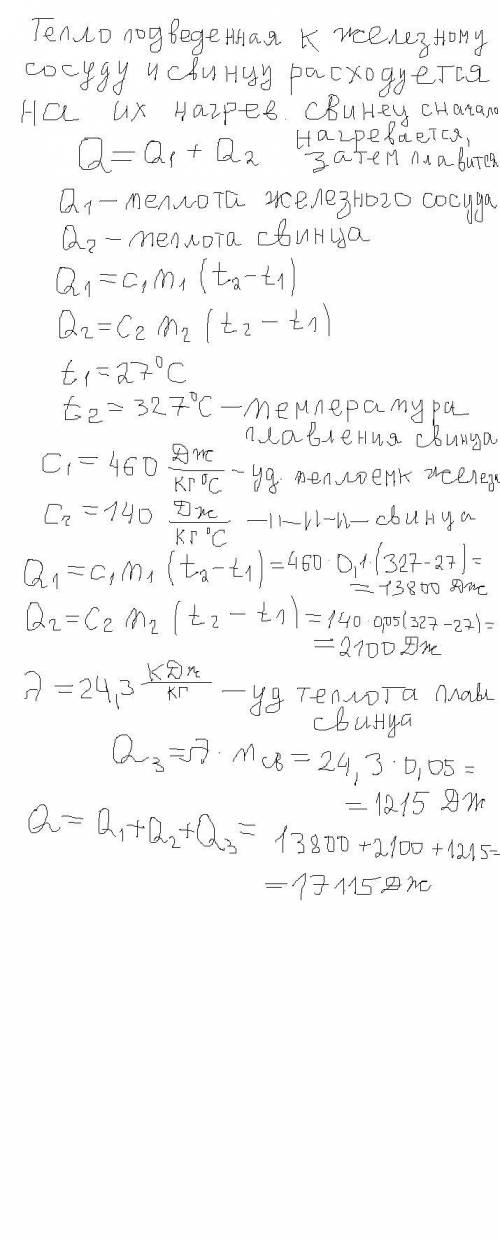 Тепло подведенная к железному
сосуду и свинцу расходуется
на их нагрев. свинец сначало
нагревается,
Q = Q1 + Q2 затем плавится
Q1 – теплота железного сосуда
Q2 – теплота свинца
Q1 = c1 m1 (t2 – t1)
Q2 = C2 m2 (t2 – t1)
t1 = 27°C
t2 = 327°C – температура
плавления свинца
C1 = 460 Дж/кг°С – уд. теплоемк желез
C2 = 140 Дж/кг°С –11–11–11– свинца
Q1 = c1 m1 (t2 – t1) = 460 · 0,1 · (327 – 27) =
= 13800 Дж
Q2 = C2 m2 (t2 – t1) = 140 · 0,05 (327 – 27) =
= 2100 Дж
λ = 24,3 кДж/кг – уд теплота плав
свинца
Q3 = λ · mсв = 24,3 · 0,05 =
= 1215 Дж
Q = Q1 + Q2 + Q3 = 13800 + 2100 + 1215 =
= 17115 Дж